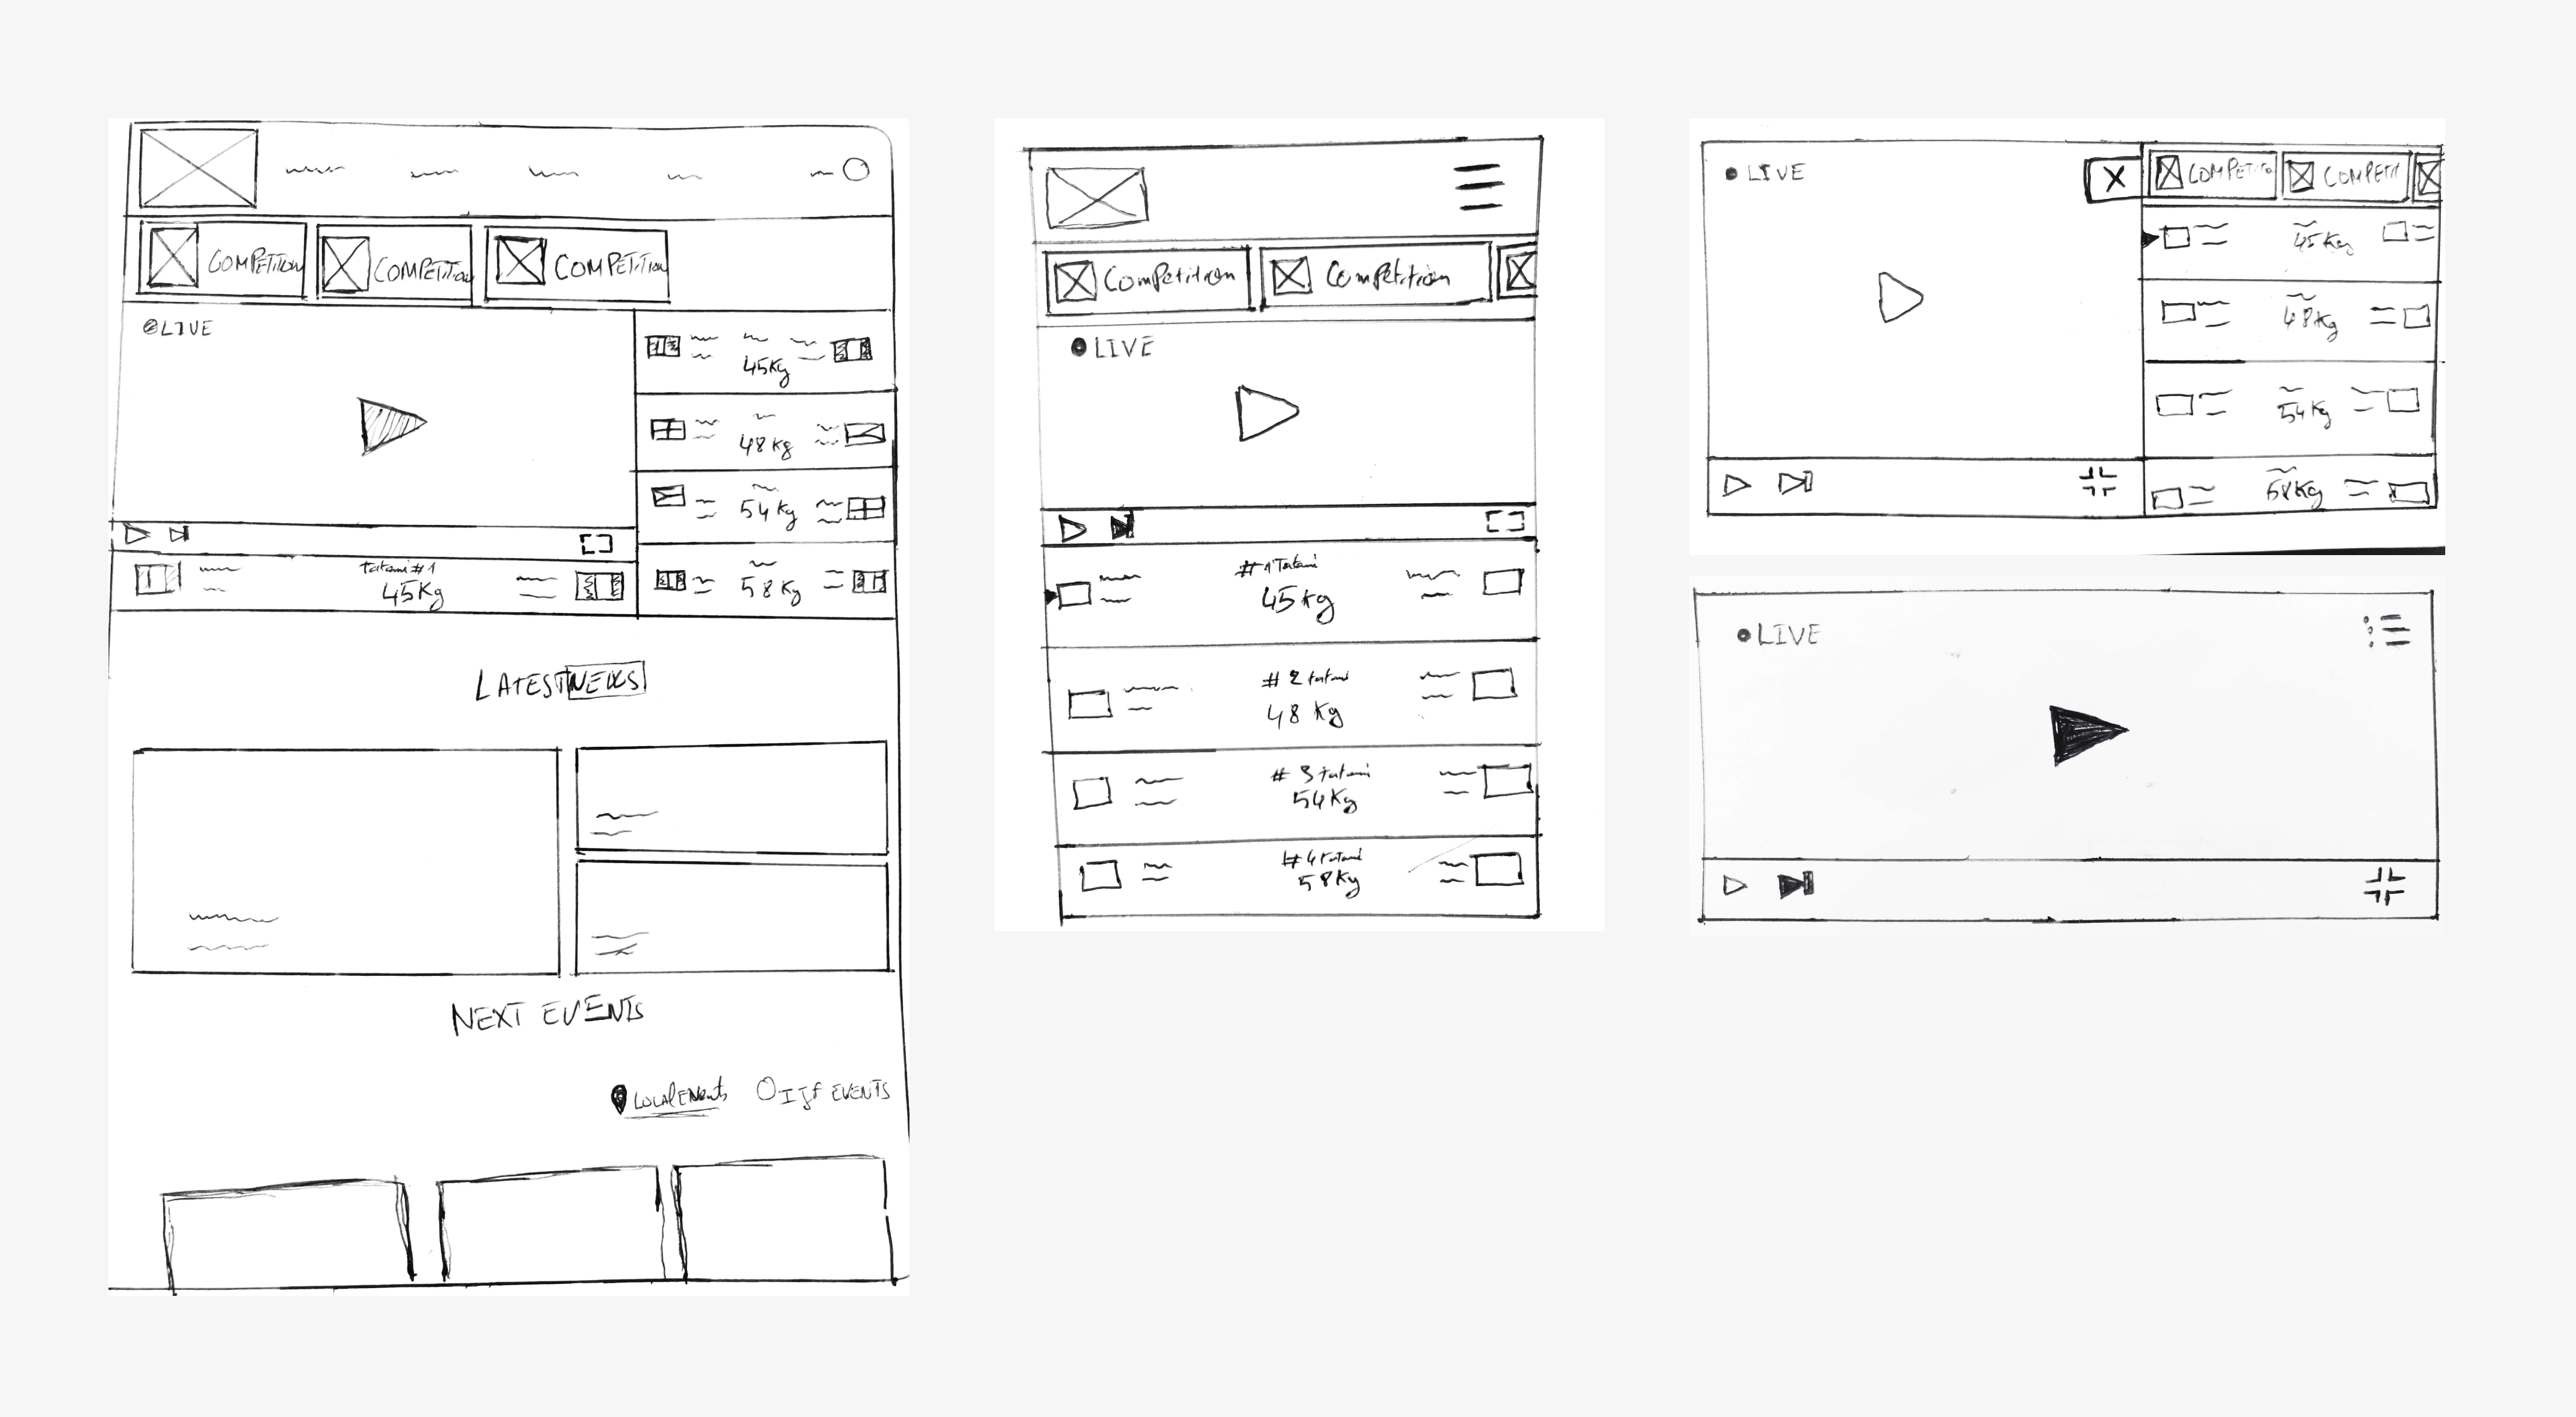 COMPETITION
COMPETITION
COMPETITION
LIVE
45Kg
48Kg
54Kg
58Kg
tatami #1
45Kg
LATEST NEWS
NEXT EVENTS
LOCAL Events
Ijf EVENTS
Competition
Competition
LIVE
#1 Tatami
45Kg
#2 tatami
48 Kg
#3 tatami
54Kg
#4 tatami
58Kg
LIVE
X
COMPETITO
COMPETIT
45Kg
48Kg
54Kg
58Kg
LIVE